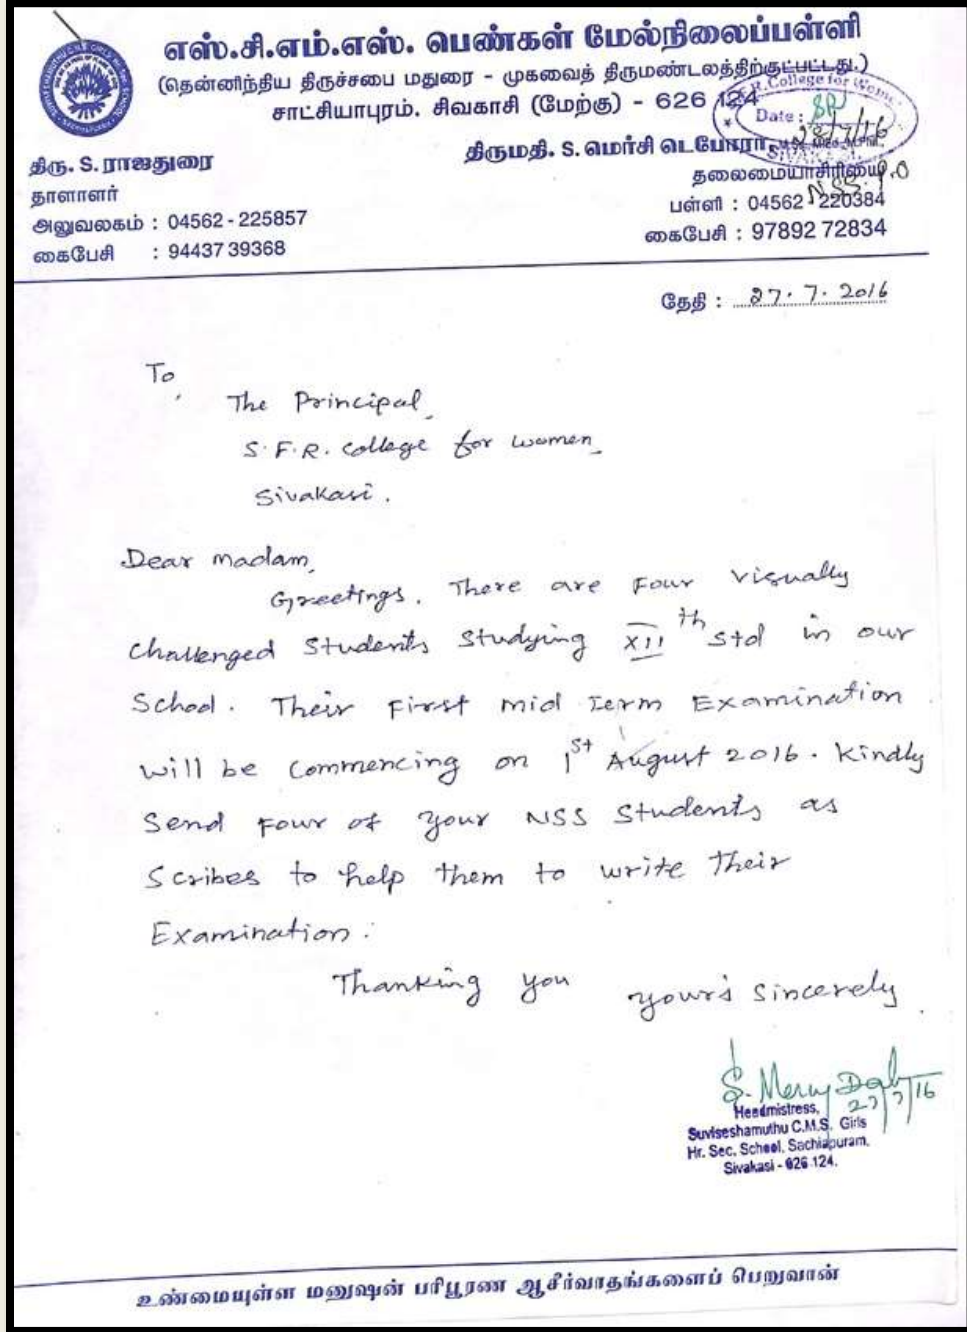 எஸ்.சி.எம்.எஸ். பெண்கள் மேல்நிலைப்பள்ளி
(தென்னிந்திய திருச்சபை மதுரை - முகவைத் திருமண்டலத்திற்குட்பட்டது.)
சாட்சியாபுரம். சிவகாசி (மேற்கு) - 626 124
College for Wome
Date :
28/7/16
SIVAKASI
NSS. P.O
திரு. S. ராஜதுரை
தாளாளர்
அலுவலகம் : 04562 - 225857
கைபேசி : 94437 39368
திருமதி. S. மெர்சி டெபோரா
தலைமையாசிரியை
பள்ளி : 04562 220384
கைபேசி : 97892 72834
தேதி : 27. 7. 2016
To,
The Principal,
S.F.R. College for women,
Sivakasi.
Dear madam,
Greetings. There are Four visually
challenged Students Studying XII th Std in our
School. Their First mid Term Examination
will be commencing on 1st August 2016. Kindly
Send Four of your NSS Students as
Scribes to help them to write Their
Examination.
Thanking you yours sincerely
27/7/16
Headmistress,
Suviseshamuthu C.M.S. Girls
Hr. Sec. School, Sachiapuram,
Sivakasi - 626 124.
உண்மையுள்ள மனுஷன் பரிபூரண ஆசீர்வாதங்களைப் பெறுவான்